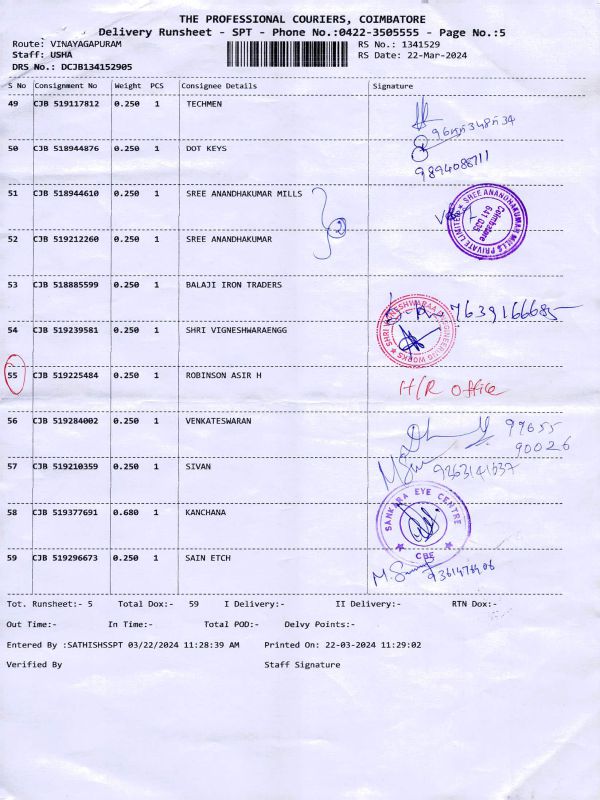 THE PROFESSIONAL COURIERS, COIMBATORE
Delivery Runsheet - SPT - Phone No.:0422-3505555 - Page No.:5
Route: VINAYAGAPURAM RS No.: 1341529
Staff: USHA RS Date: 22-Mar-2024
DRS No.: DCJB134152905
S No Consignment No Weight PCS Consignee Details Signature
49 CJB 519117812 0.250 1 TECHMEN
50 CJB 518944876 0.250 1 DOT KEYS
9894088711
51 CJB 518944610 0.250 1 SREE ANANDHAKUMAR MILLS
2
SREE ANANDHAKUMAR MILLS PRIVATE LIMITED
Coimbatore
641 035
52 CJB 519212260 0.250 1 SREE ANANDHAKUMAR
53 CJB 518885599 0.250 1 BALAJI IRON TRADERS
7639166685
54 CJB 519239581 0.250 1 SHRI VIGNESHWARAENGG
SHRI VIGNESHWARAA ENGINEERING WORKS
55 CJB 519225484 0.250 1 ROBINSON ASIR H
H/R office
56 CJB 519284002 0.250 1 VENKATESWARAN
99655
90026
57 CJB 519210359 0.250 1 SIVAN
58 CJB 519377691 0.680 1 KANCHANA
SANKARA EYE CENTRE
CBE
59 CJB 519296673 0.250 1 SAIN ETCH
9361476406
Tot. Runsheet:- 5 Total Dox:- 59 I Delivery:- II Delivery:- RTN Dox:-
Out Time:- In Time:- Total POD:- Delvy Points:-
Entered By :SATHISHSSPT 03/22/2024 11:28:39 AM Printed On: 22-03-2024 11:29:02
Verified By Staff Signature